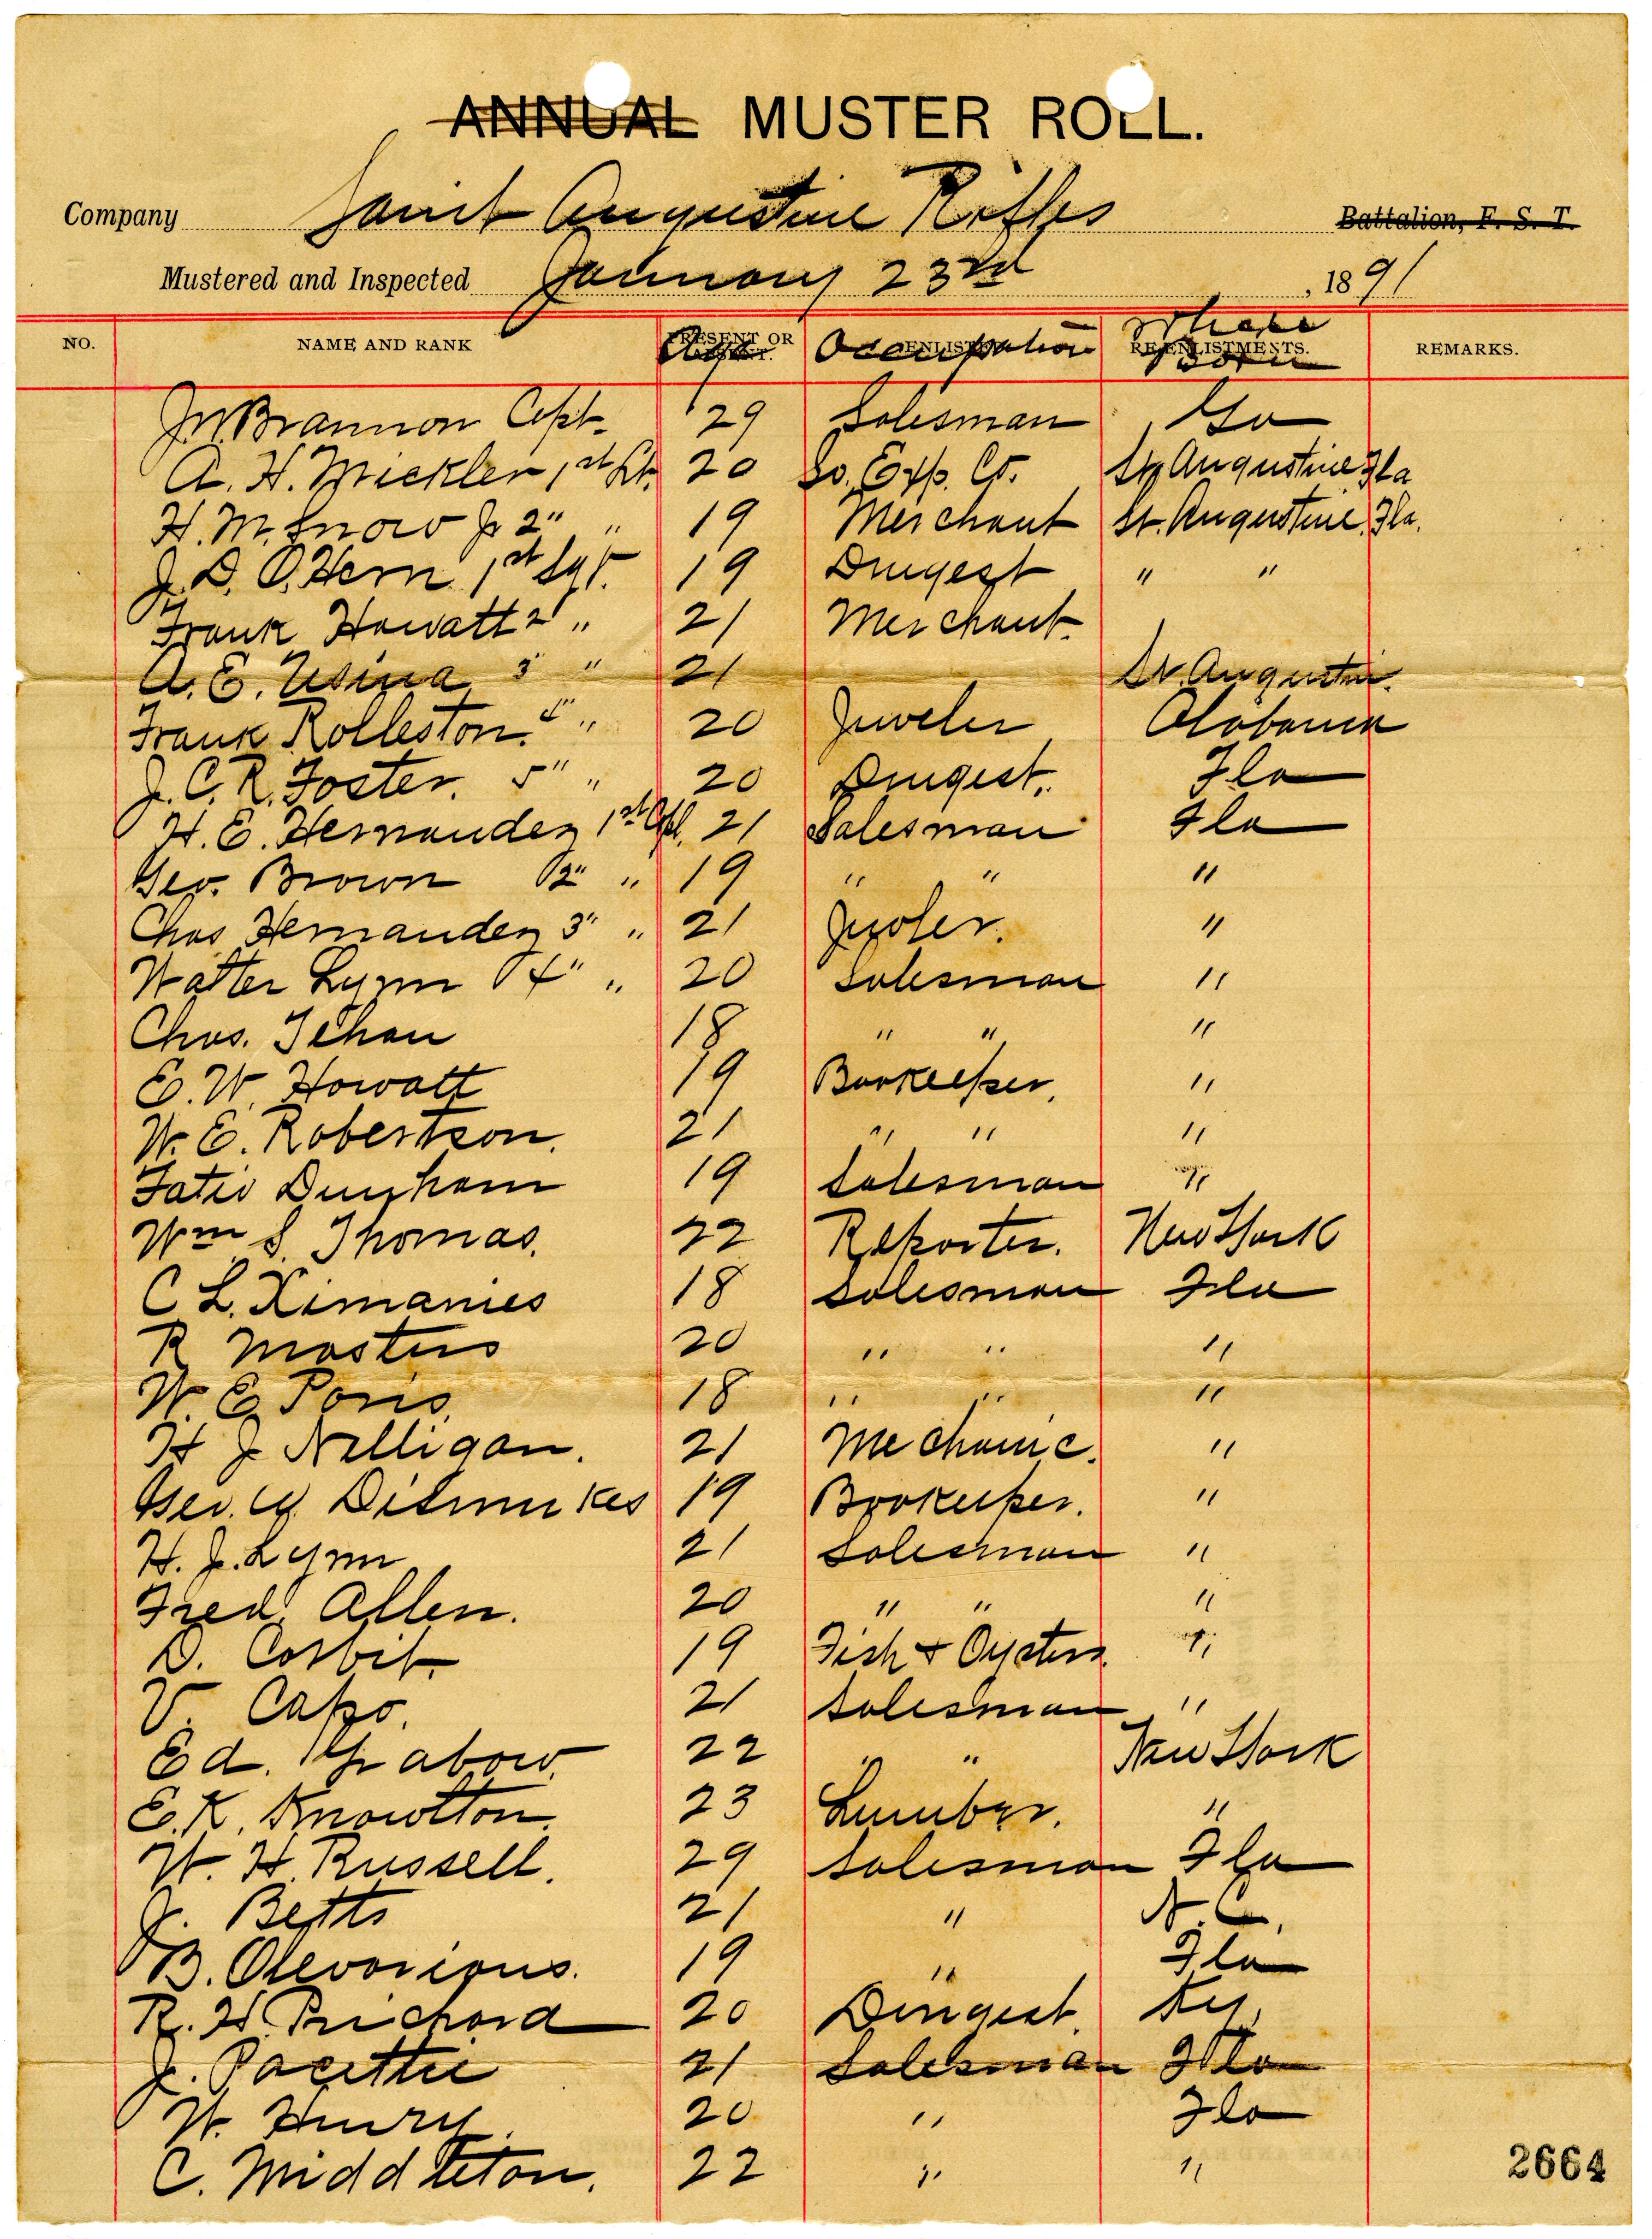 ANNUAL MUSTER ROLL.
Company Saint Augustine Rifles Battalion, F. S. T.
Mustered and Inspected January 23rd, 1891
NO. NAME AND RANK PRESENT OR ABSENT. Age ENLISTMENTS. Occupation RE-ENLISTMENTS. Where Born REMARKS.
J. W. Brannon Capt. 29 Salesman Ga
A. H. Mickler 1st Lt. 20 So. Exp. Co. St. Augustine Fla
H. M. Snow Jr 2" " 19 Merchant St. Augustine, Fla.
J. D. O'Hern 1st Sgt. 19 Drugest " "
Frank Howatt 2" " 21 Merchant
A. E. Usina 3" " 21 St. Augustin.
Frank Rolleston. 4" " 20 Juweler Alabama
J. C. R. Foster. 5" " 20 Drugest. Fla
H. E. Hernandez 1st Cpl. 21 Salesman Fla
Geo. Brown 2" " 19 " " "
Chas Hernandez 3" " 21 Juoler. "
Walter Lynn 4" " 20 Salesman "
Chas. Tehan 18 " " "
E. W. Howatt 19 Bookeeper. "
W. E. Robertson. 21 " " "
Fatio Dunham 19 Salesman "
Wm S. Thomas. 22 Reporter. New York
C L. Ximanies 18 Salesman Fla
R Masters 20 " " "
W. E Poris 18 " " "
H J Nelligan. 21 Mechanic. "
Geo. W. Dismukes 19 Bookeeper. "
H. J. Lynn 21 Salesman "
Fred. Allen. 20 " " "
D. Corbit 19 Fish & Oysters. "
V. Capo. 21 Salesman "
Ed. Grabow. 22 " " New York
E. K. Knowlton. 23 Lumber. "
W. H. Russell. 29 Salesman Fla
J. Betts 21 " N. C.
B. Olevorious. 19 " Fla
R. H. Prichard 20 Drugest. Ky.
J. Pacettie 21 Salesman Fla
W. Henry. 20 " Fla
C. Middleton. 22 " "
2664